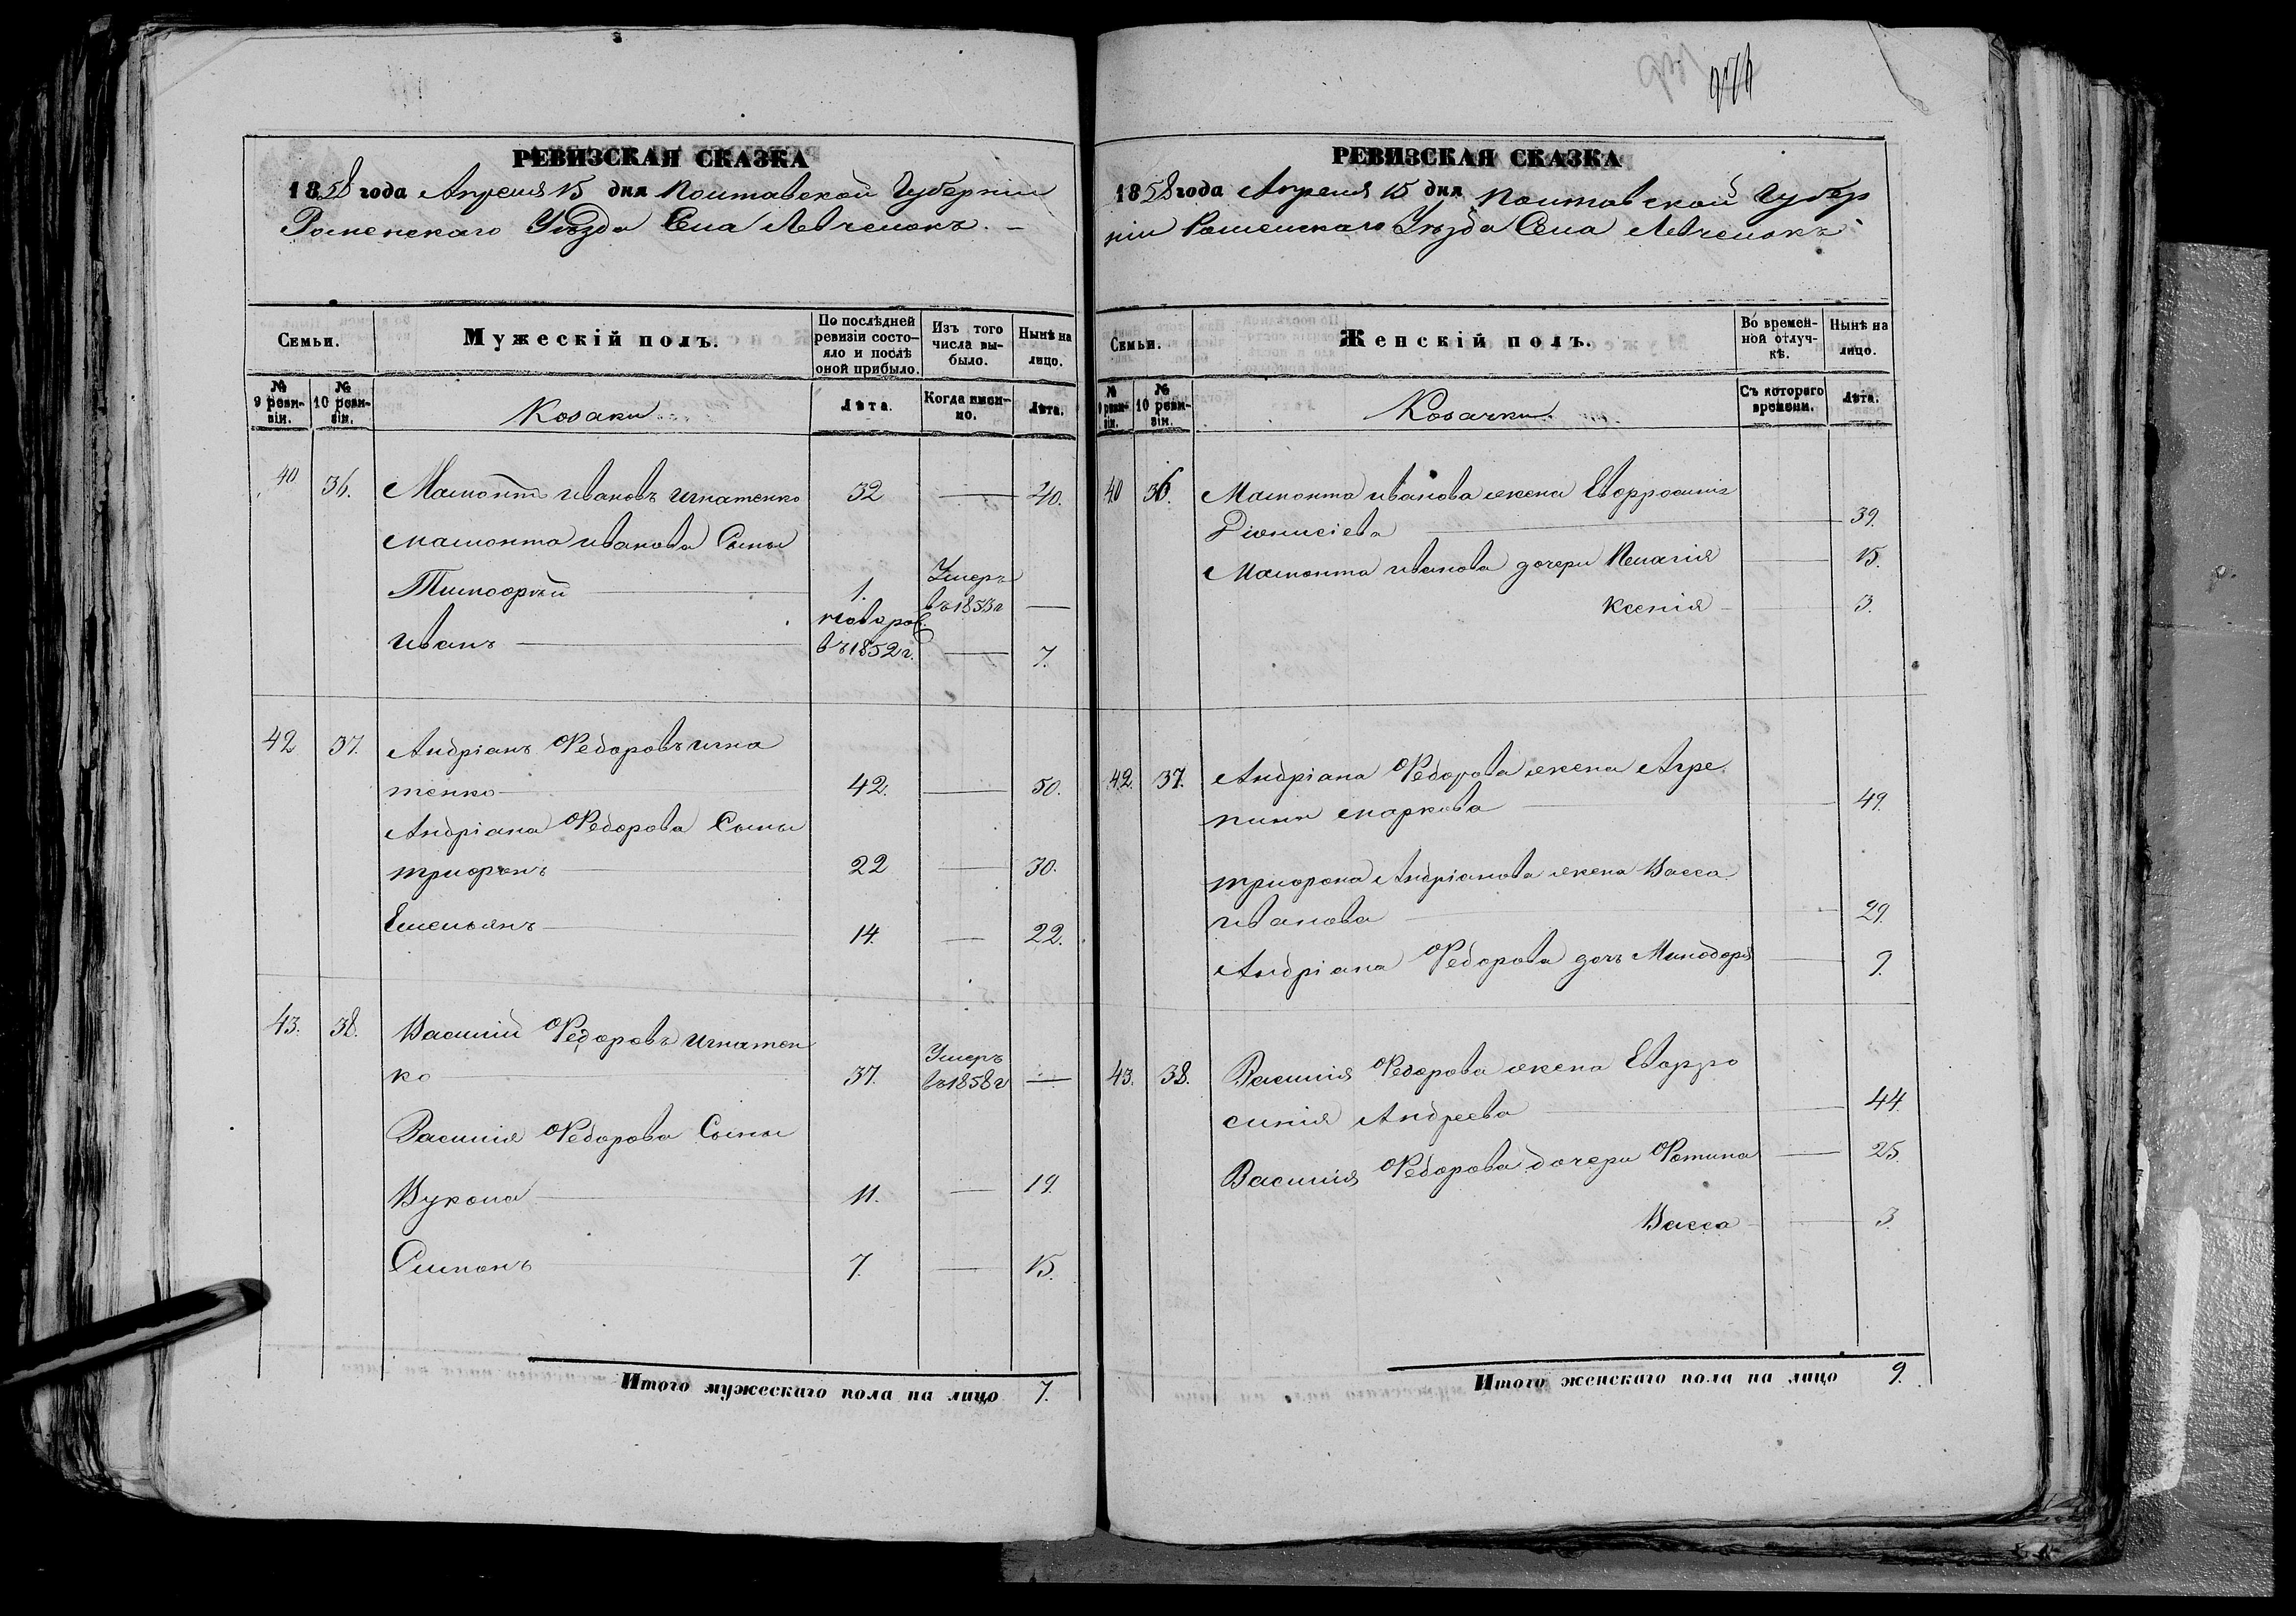 РЕВИЗСКАЯ СКАЗКА
1858 года Апреля 15 дня Полтавской Губерніи
Роменскаго Уѣзда Села Лѣвченокъ. –
Семьи.
Мужескій полъ.
По послѣдней ревизіи состояло и послѣ оной прибыло.
Изъ того числа выбыло.
Нынѣ на лицо.
№ 9 ревизіи.
№ 10 ревизіи.
Козаки
Лѣта.
Когда именно.
Лѣта.
40 36. Мамонтъ ивановъ игнатенко 32 — 40.
мамонта иванова Сыны
Тимофѣй 1. Умеръ въ 1853 г —
иванъ новорож. въ 1852 г. — 7.
42 37. Андріанъ Ѳедоровъ игна
тенко 42. — 50.
Андріана Ѳедорова Сыны
трифонъ 22 — 30.
Емельянъ 14. — 22.
43. 38. Василій Ѳедоровъ игнатен
ко 37. Умеръ въ 1858 г —
Василія Ѳедорова Сыны
Вукола 11. — 19.
Симонъ 7. — 15.
Итого мужескаго пола на лицо 7.
РЕВИЗСКАЯ СКАЗКА
1858 года Апреля 15 дня Полтавской Губер
ніи Роменскаго Уѣзда Села Лѣвченокъ
Семьи.
Женскій полъ.
Во временной отлучкѣ.
Нынѣ на лицо.
№ 9 ревизіи.
№ 10 ревизіи.
Козачки.
Съ котораго времени.
Лѣта.
40 36. Мамонта иванова жена Евфросинія
Діонисіева — 39.
Мамонта иванова дочери Пелагія — 15.
Ксенія — 3.
42. 37. Андріана Ѳедорова жена Агре
пина маркова — 49.
трифона Андріанова жена Васса
иванова — 29.
Андріана Ѳедорова дочь Минодора — 9.
43. 38. Василія Ѳедорова жена Евфро
синія Андреева — 44.
Василія Ѳедорова дочери Фотина — 25.
Васса — 3.
Итого женскаго пола на лицо 9.